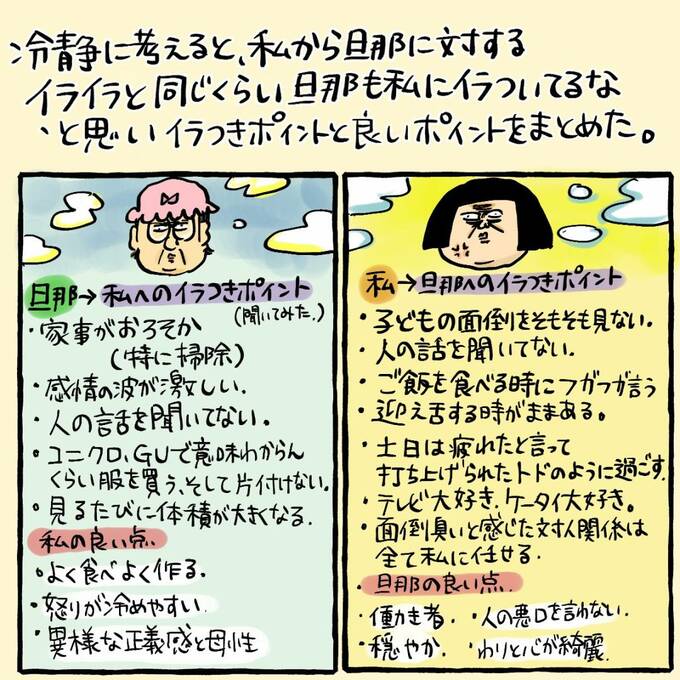 冷静に考えると、私から旦那に対する
イライラと同じくらい旦那も私にイラついてるな
、と思いイラつきポイントと良いポイントをまとめた。
旦那→私へのイラつきポイント
(聞いてみた。)
・家事がおろそか
(特に掃除)
・感情の波が激しい、
・人の話を聞いてない。
・ユニクロ、GUで意味わからん
くらい服を買う、そして片付けない。
・見るたびに体積が大きくなる.
私の良い点.
・よく食べよく作る.
・怒りが冷めやすい.
・異様な正義感と母性
私→旦那へのイラつきポイント
・子どもの面倒をそもそも見ない。
・人の話を聞いてない.
・ご飯を食べる時にフガフガ言う
・迎え舌する時がままある。
・土日は疲れたと言って
打ち上げられたトドのように過ごす.
・テレビ大好き、ケータイ大好き。
・面倒臭いと感じた対人関係は
全て私に任せる.
・旦那の良い点.
・働き者. ・人の悪口を言わない.
・穏やか. ・わりと心が綺麗.